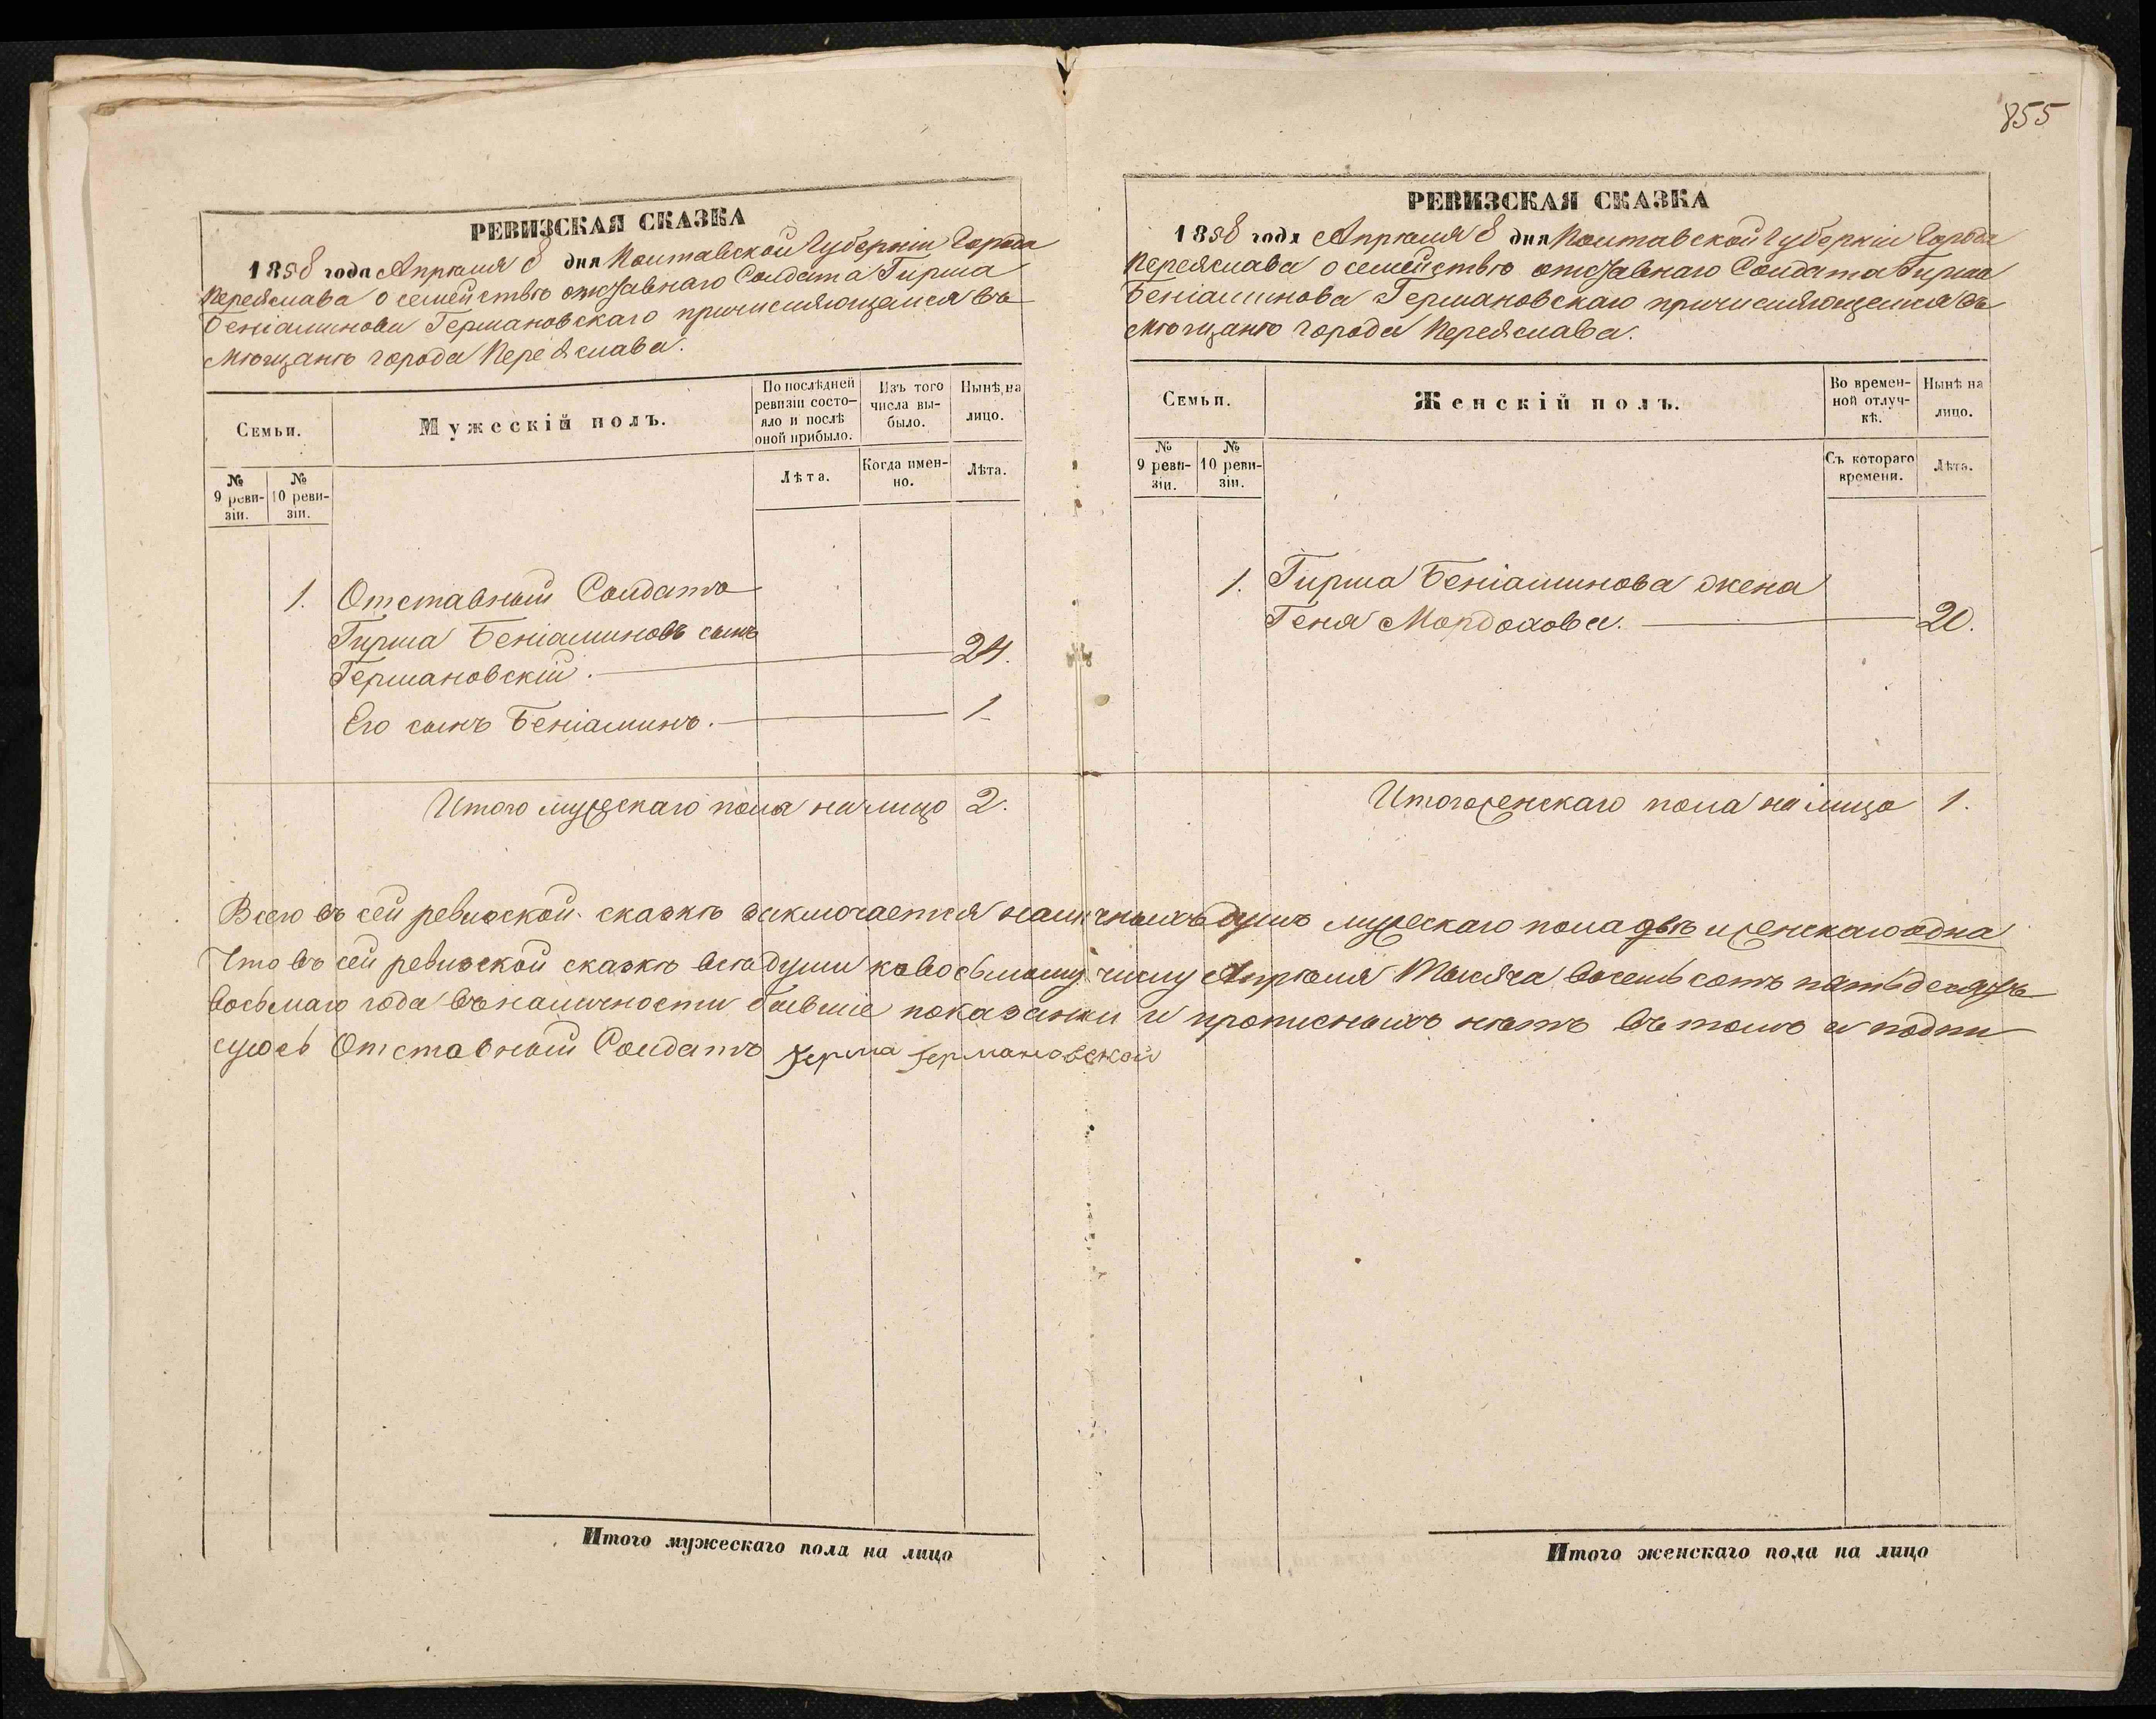 855
РЕВИЗСКАЯ СКАЗКА
1858 года Апрѣля 8 дня Полтавской Губерніи Города
Переяслава о семействѣ отставнаго Солдата Гирша
Беніаминова Германовскаго причисляющемся въ
Мѣщане города Переяслава.
Семьи.
Мужескій полъ.
По послѣдней
ревизіи состо-
яло и послѣ
оной прибыло.
Изъ того
числа вы-
было.
Нынѣ на
лицо.
№
9 реви-
зіи.
№
10 реви-
зіи.
Лѣта.
Когда имен-
но.
Лѣта.
1. Отставный Солдатъ
Гирша Беніаминовъ сынъ
Германовскій. 24.
Его сынъ Беніаминъ. 1
Итого мужескаго пола на лицо 2.
РЕВИЗСКАЯ СКАЗКА
1858 года Апрѣля 8 дня Полтавской Губерніи Города
Переяслава о семействѣ отставнаго Солдата Гирша
Беніаминова Германовскаго причисляющемся въ
Мѣщане города Переяслава.
Семьи.
Женскій полъ.
Во времен-
ной отлуч-
кѣ.
Нынѣ на
лицо.
№
9 реви-
зіи.
№
10 реви-
зіи.
Съ котораго
времени.
Лѣта.
1. Гирша Беніаминова жена
Геня Мордохова. 20.
Итого женскаго пола на лицо 1.
Всего въ сей ревизской сказкѣ заключается наличныхъ душъ мужескаго пола двѣ и женскаго одна
Что въ сей ревизской сказкѣ всѣ души ко восьмому числу Апрѣля Тысяча восемь сотъ пятьдесятъ
восьмаго года въ наличности бывшіе показанки и прописныхъ нѣтъ въ томъ и подпи
суюсь Отставной Солдатъ герша германовской
Итого мужескаго пола на лицо
Итого женскаго пола на лицо